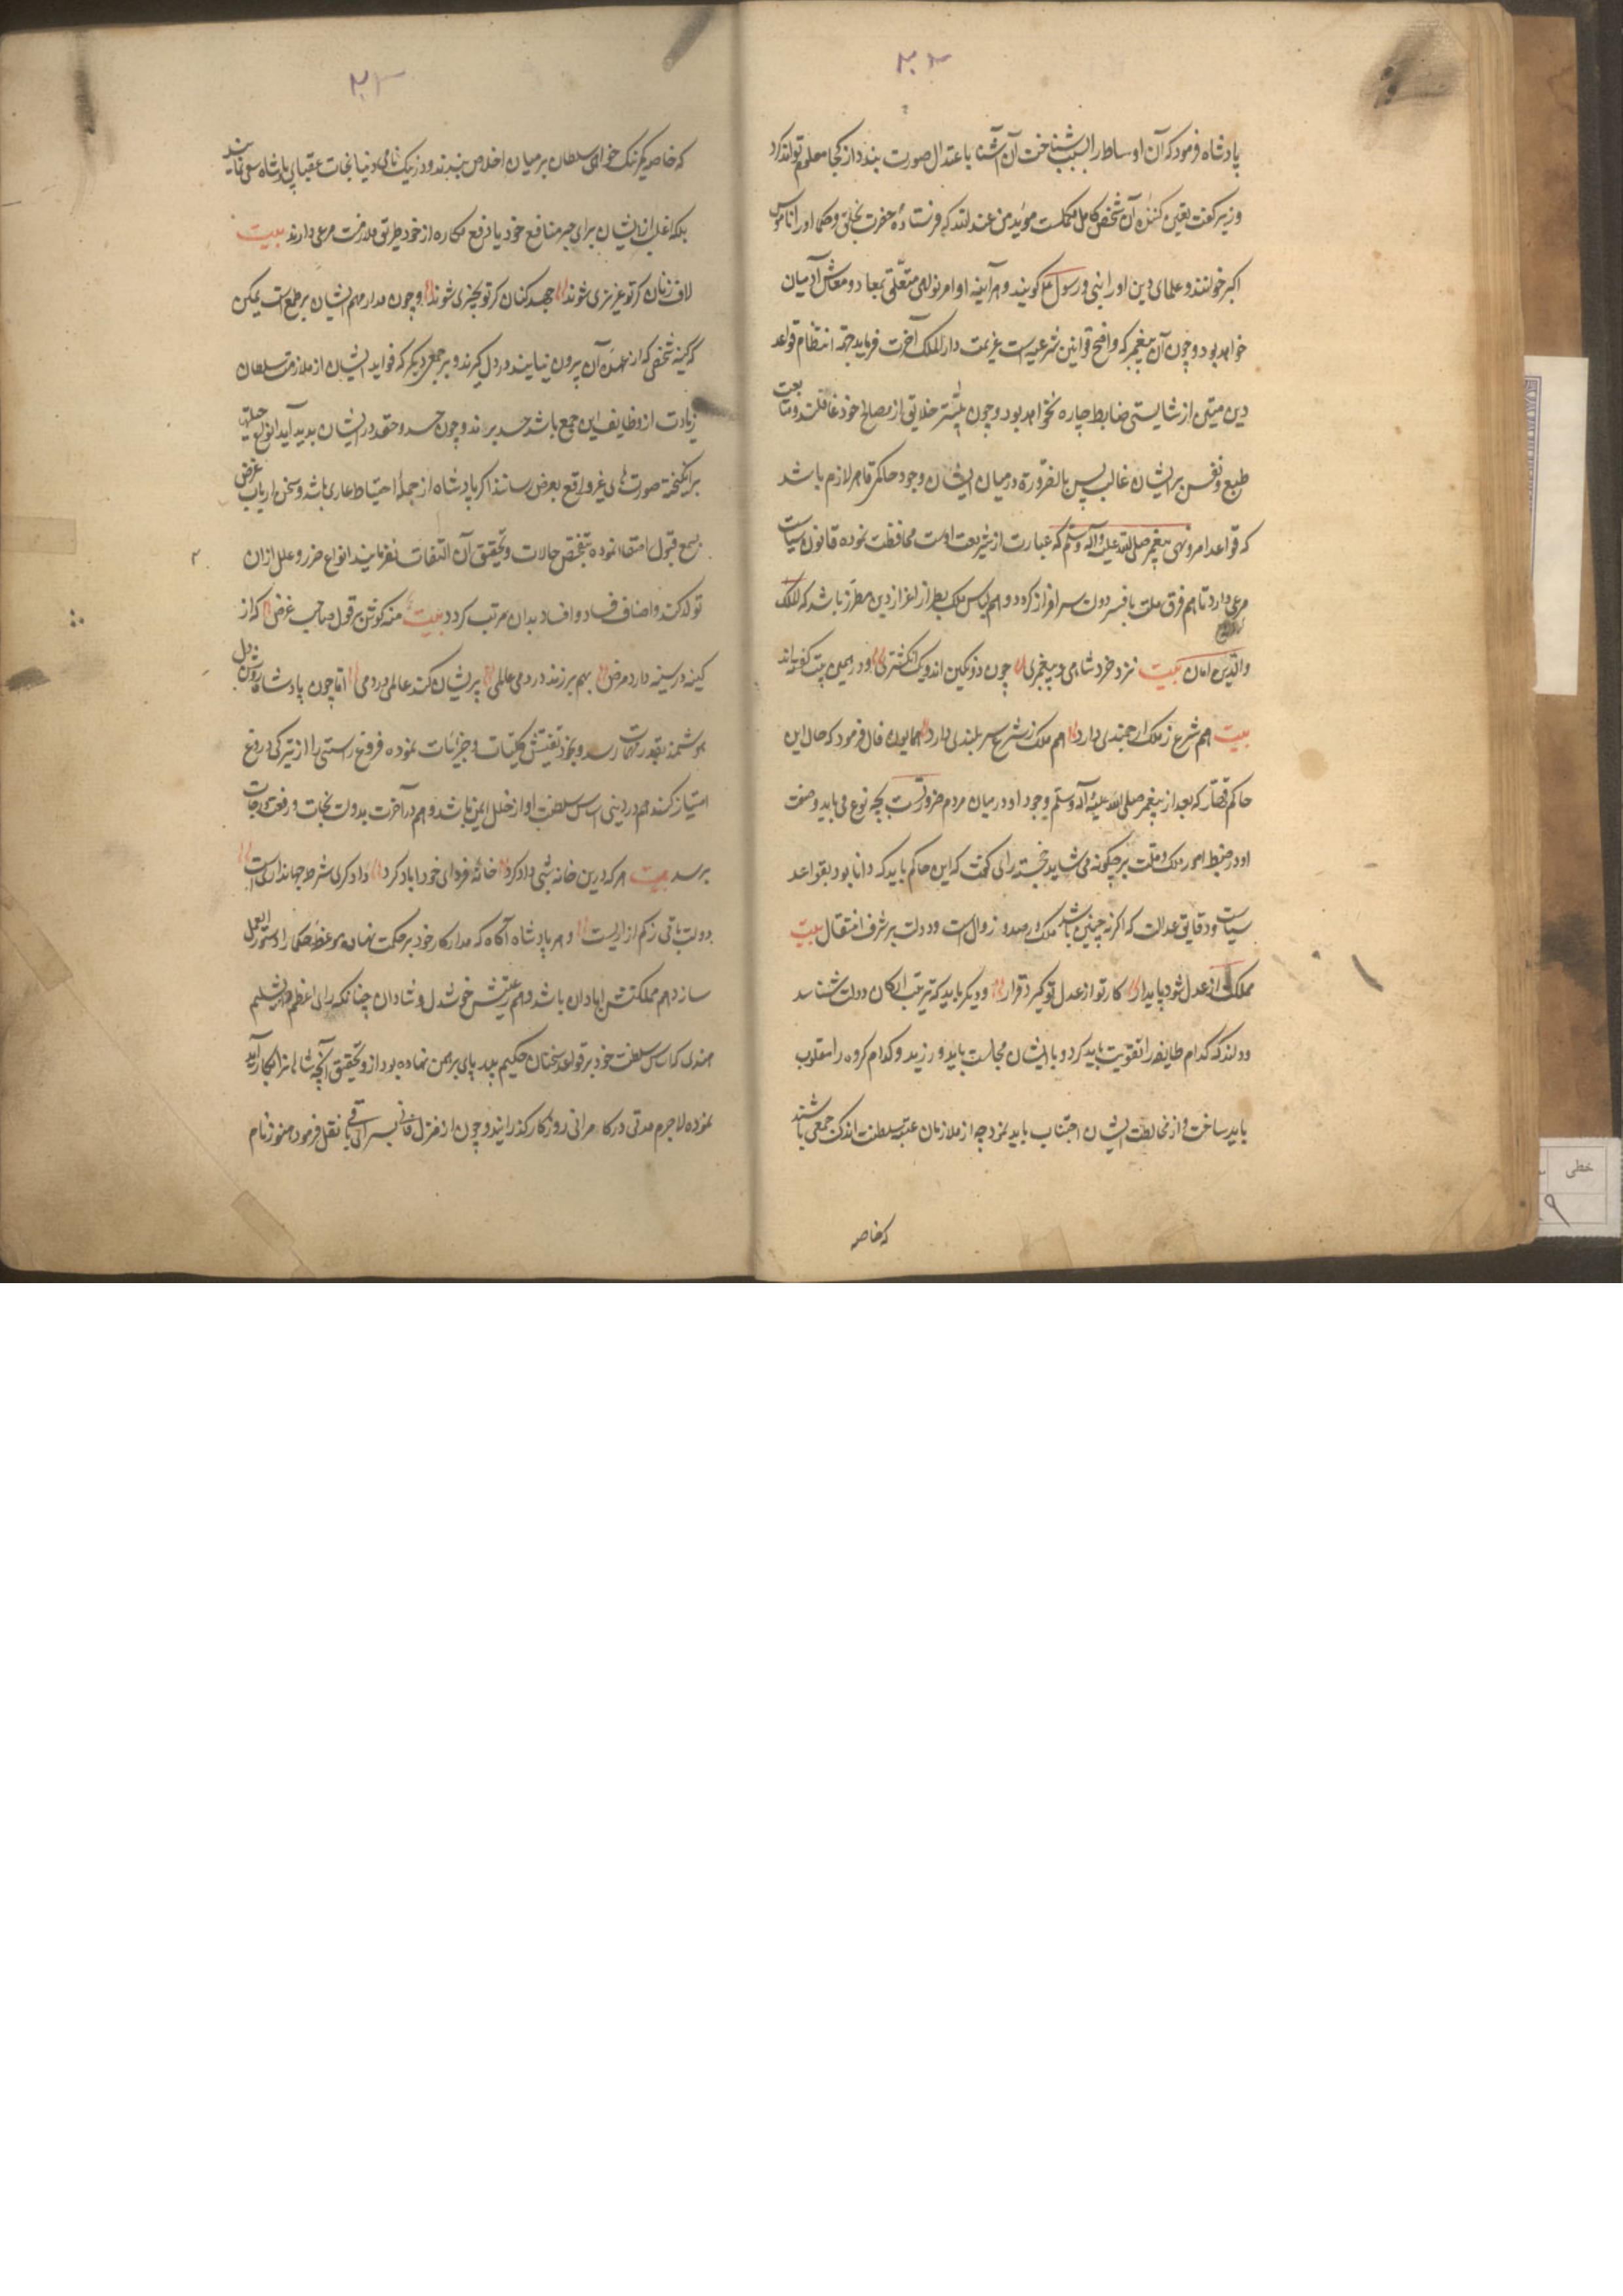 ۲۰۳
پادشاه فرمود که آن اوساط را بسبب شناخت آن آشنا باعتدال صورت بندد از کجا معلوم تواند کرد
وزیر گفت یقین کننده آن شخص کامل مکملست مؤید من عند الله که فرستاده حضرت بخلق و حکما او را ناموس
اکبر خوانند و علمای دین او را نبی و رسول گویند و هر آینه اوامر نواهی متعلق بمعاد و معاش آدمیان
خواهد بود و چون آن پیغمبر که واضع قوانین شرعیه است عزیمت دار الملک آخرت فرماید جهة انتظام قواعد
دین متین از شایستی ضابط چاره نخواهد بود و چون بیشتر خلایق از مصالح خود غافلند و متابعت
طبع و نفس بر ایشان غالب پس بالضرورة در میان ایشان وجود حاکمی قاهر لازم باشد
که قواعد امر و نهی پیغمبر صلی الله علیه وآله وسلم که عبارت از شریعت اوست محافظت نموده قانون سیاست
مرعی دارد تا هم فرق ملت بافسر دولت سرافراز گردد و هم لباس ملک بطراز اعزاز دین مطرز باشد که الملک
والدین توامان بیت نزد خرد شاهی و پیغمبری چون دو نگین اند و یک انگشتری و در همین بیت گفته اند
بیت هم شرع ز ملک ارجمندی دارد هم ملک ز شرع سربلندی دارد همایون فال فرمود که حال این
حاکم قضار که بعد از پیغمبر صلی الله علیه وآله وسلم وجود او در میان مردم ضرورتست بچه نوع می باید و صفت
او در ضبط امور ملک و ملت بر چگونه می شاید خجسته رای گفت که این حاکم باید که دانا بود بقواعد
سیاست و دقایق عدالت که اگر نه چنین باشد ملک در صدد زوال است و دولت بر شرف انتقال بیت
مملکت از عدل شود پایدار کار تو از عدل تو گیرد قرار و دیگر باید که تربیت ارکان دولت شناسد
و داند که کدام طایفه را تقویت باید کرد و با ایشان مجالست باید ورزید و کدام گروه را مغلوب
باید ساخت و از مخالطت ایشان اجتناب باید نمود چه از ملازمان عتبه سلطنت اندک جمعی باشند
که خاصه
که خاصه یکرنگ خواهی سلطان بر میان اخلاص بندند و در نیک نامی دنیا و نجات عقبای پادشاه سعی نمایند
بلکه اغلب از ایشان برای جر منافع خود یا دفع مکاره از خود طریق ملازمت مرعی دارند بیت
لاف زنان کز تو عزیزی شوند جهد کنان کز تو بچیزی شوند و چون مدار مهم ایشان بر طمع است یمکن
که کینه شخصی که از عهده آن بیرون نیایند در دل گیرند و بر جمعی دیگر که فواید ایشان از ملازمت سلطان
زیادت از وظایف این جمع باشد حسد برند و چون حسد و حقد در ایشان پدید آید انواع حیلتها
برانگیخته صورت های غیر واقع بعرض رسانند اگر پادشاه از جمله احتیاط عاری باشد و سخن ارباب غرض
بسمع قبول اصغا نموده بتفحص حالات و تحقیق آن التفات نفرمایند انواع ضرر و علل از آن
تولد کند و اصناف فساد و افساد بدان مرتب گردد بیت منه گوش بر قول صاحب غرض که از
کینه در سینه دارد مرض بهم برزند در دمی عالمی پریشان کند عالمی در دمی اما چون پادشاه روشن دل
هوشمند بغور مهمات رسد و بخود تفتیش کلیات و جزئیات نموده فروغ راستی را از تیرگی دروغ
امتیاز کند هم در دینی اساس سلطنت او از خلل ایمن باشد و هم در آخرت بدولت نجات و رفعت درجات
برسد بیت هر که درین خانه شبی داد کرد خانه فردای خود اباد کرد دادگری شرط جهانداریست
دولت باقی ز کم آزاریست و هر پادشاه آگاه که مدار کار خود بر حکمت نهاده موعظه حکما را دستور العمل
سازد هم مملکتش ابادان باشد و هم رعیتش خوشدل و شادان چنانکه رای اعظم دابشلیم
هندی که اساس سلطنت خود بر قواعد سخنان حکیم بیدپای برهمن نهاده بود از و تحقیق آنچه شاهانرا بکار آید
نموده لاجرم مدتی در کامرانی روزگار گذرانید و چون از منزل فانی بسرای باقی نقل فرمود هنوز نام
خطی
۹